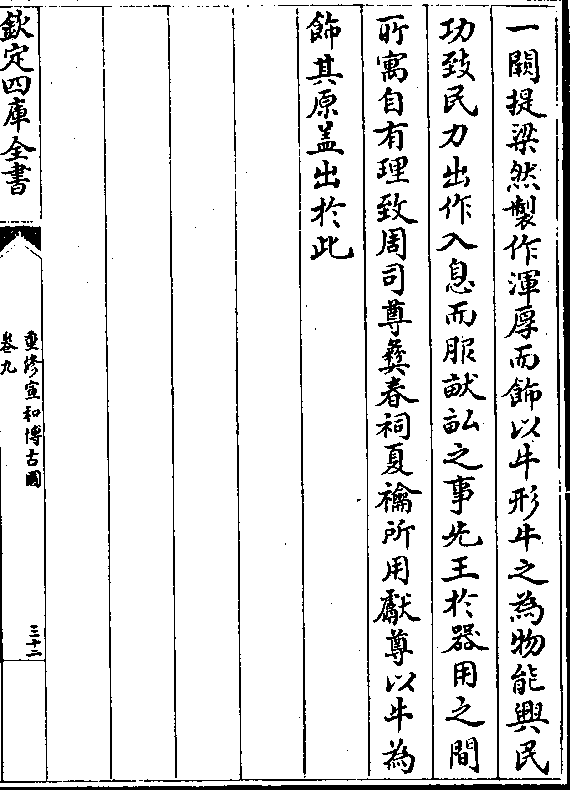 一闕提梁然製作渾厚而飾以牛形牛之為物能興民
功致民力出作入息而服畎畝之事先王於器用之間
所寓自有理致周司尊彝春祠夏禴所用獻尊以牛為
飾其原盖出於此
欽定四庫全書
重修宣和博古圖
卷九
三十二